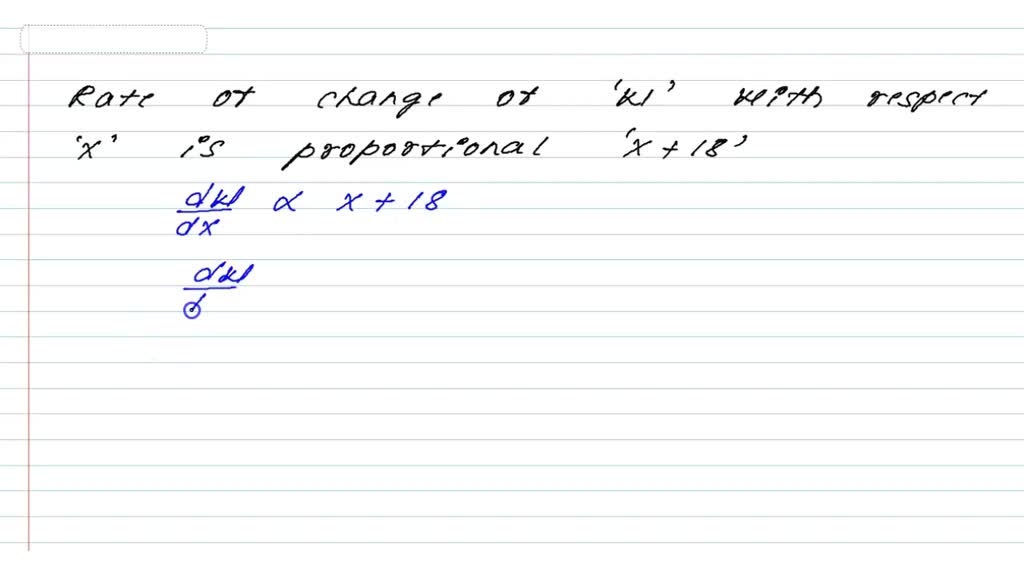 Rate of change of 'w' with respect
'x' is proportional 'x + 18'
dw/dx ∝ x + 18
dw/d